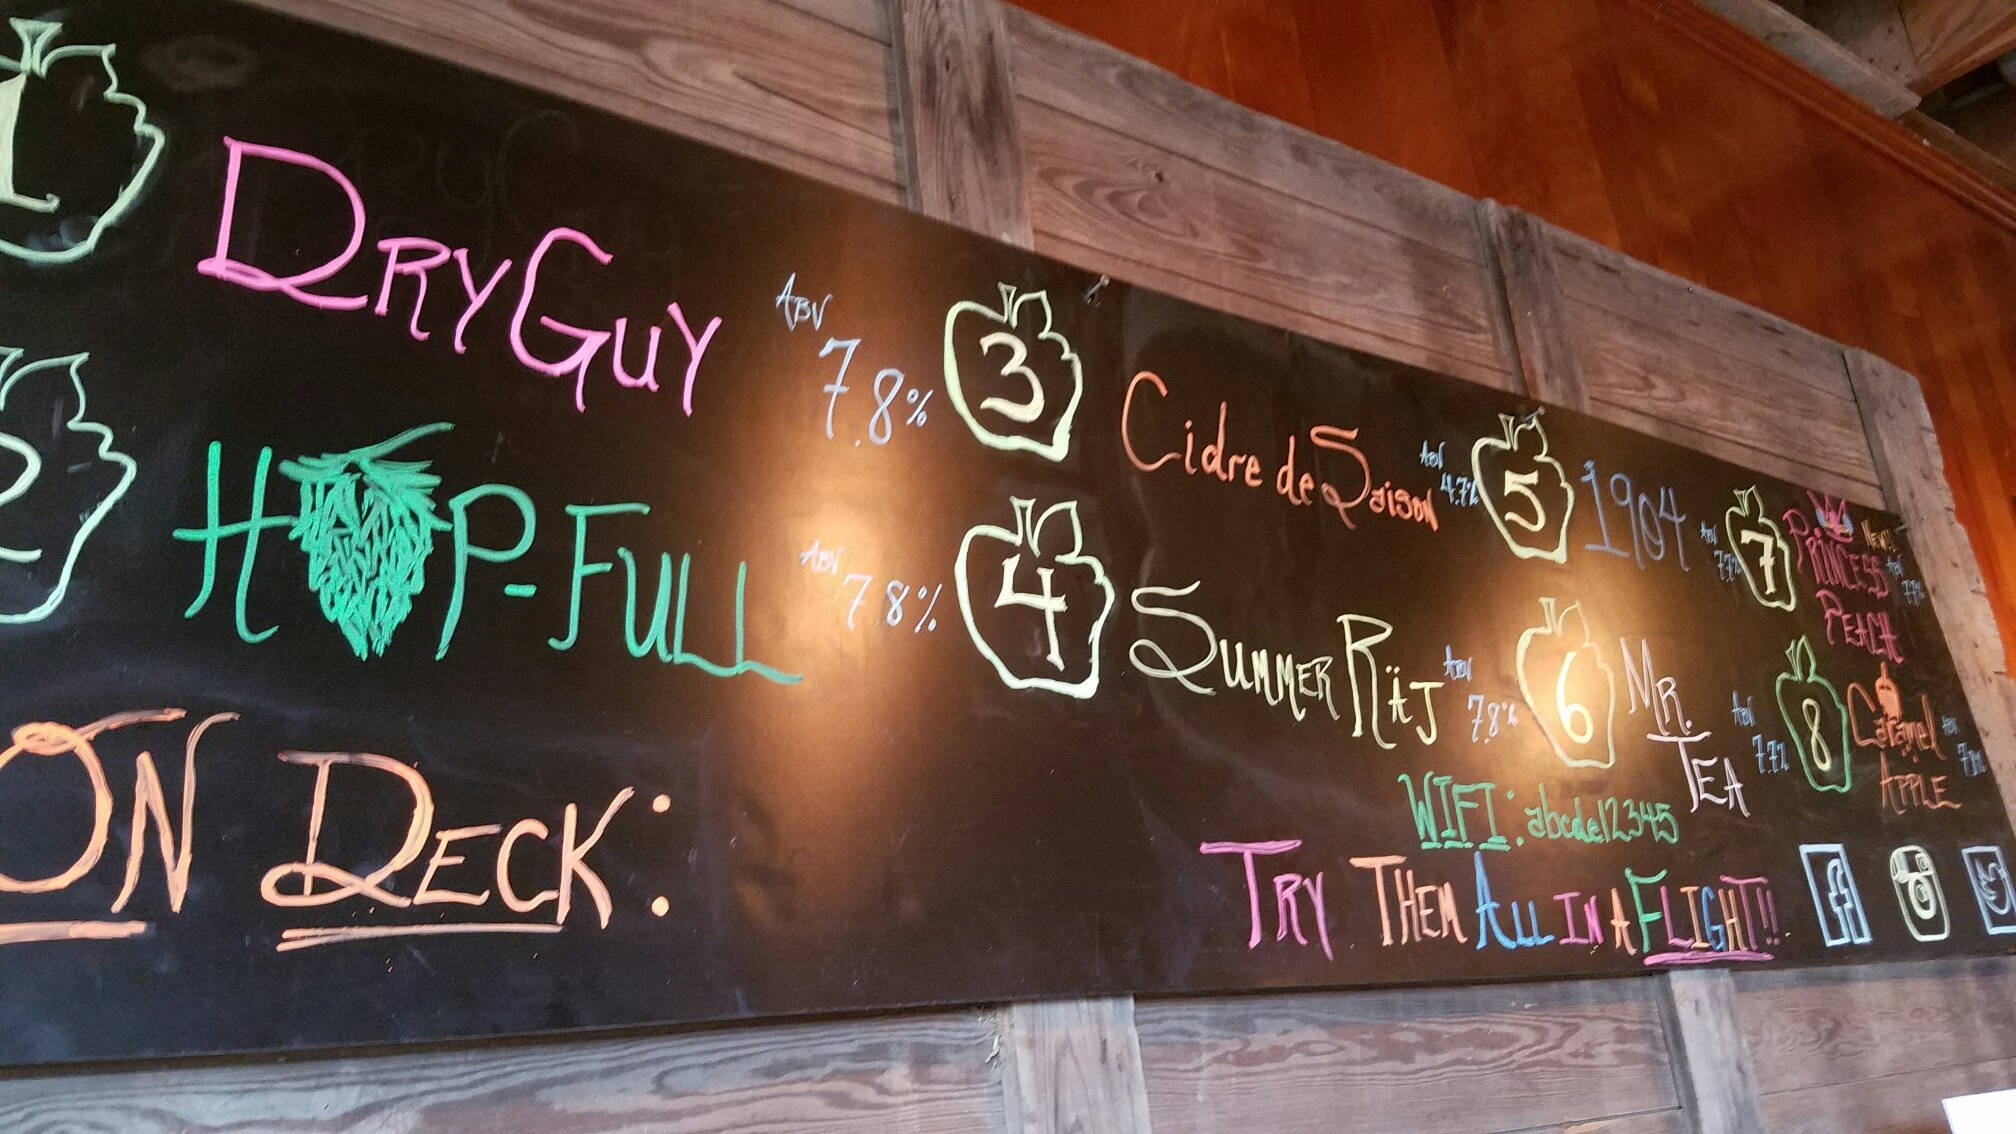 1
DRY GUY
ABV
7.8%
2
HOP-FULL
ABV
7.8%
ON DECK:
3
Cidre de Saison
ABV
4.7%
4
SUMMER RÄJ
ABV
7.8%
5
1904
ABV
7.7%
6
MR.
TEA
ABV
7.7%
7
PRINCESS
PEACH
NEW!!
ABV
7.7%
8
Caramel
APPLE
ABV
7.8%
WIFI: abcde12345
TRY THEM ALL IN A FLIGHT!!
f